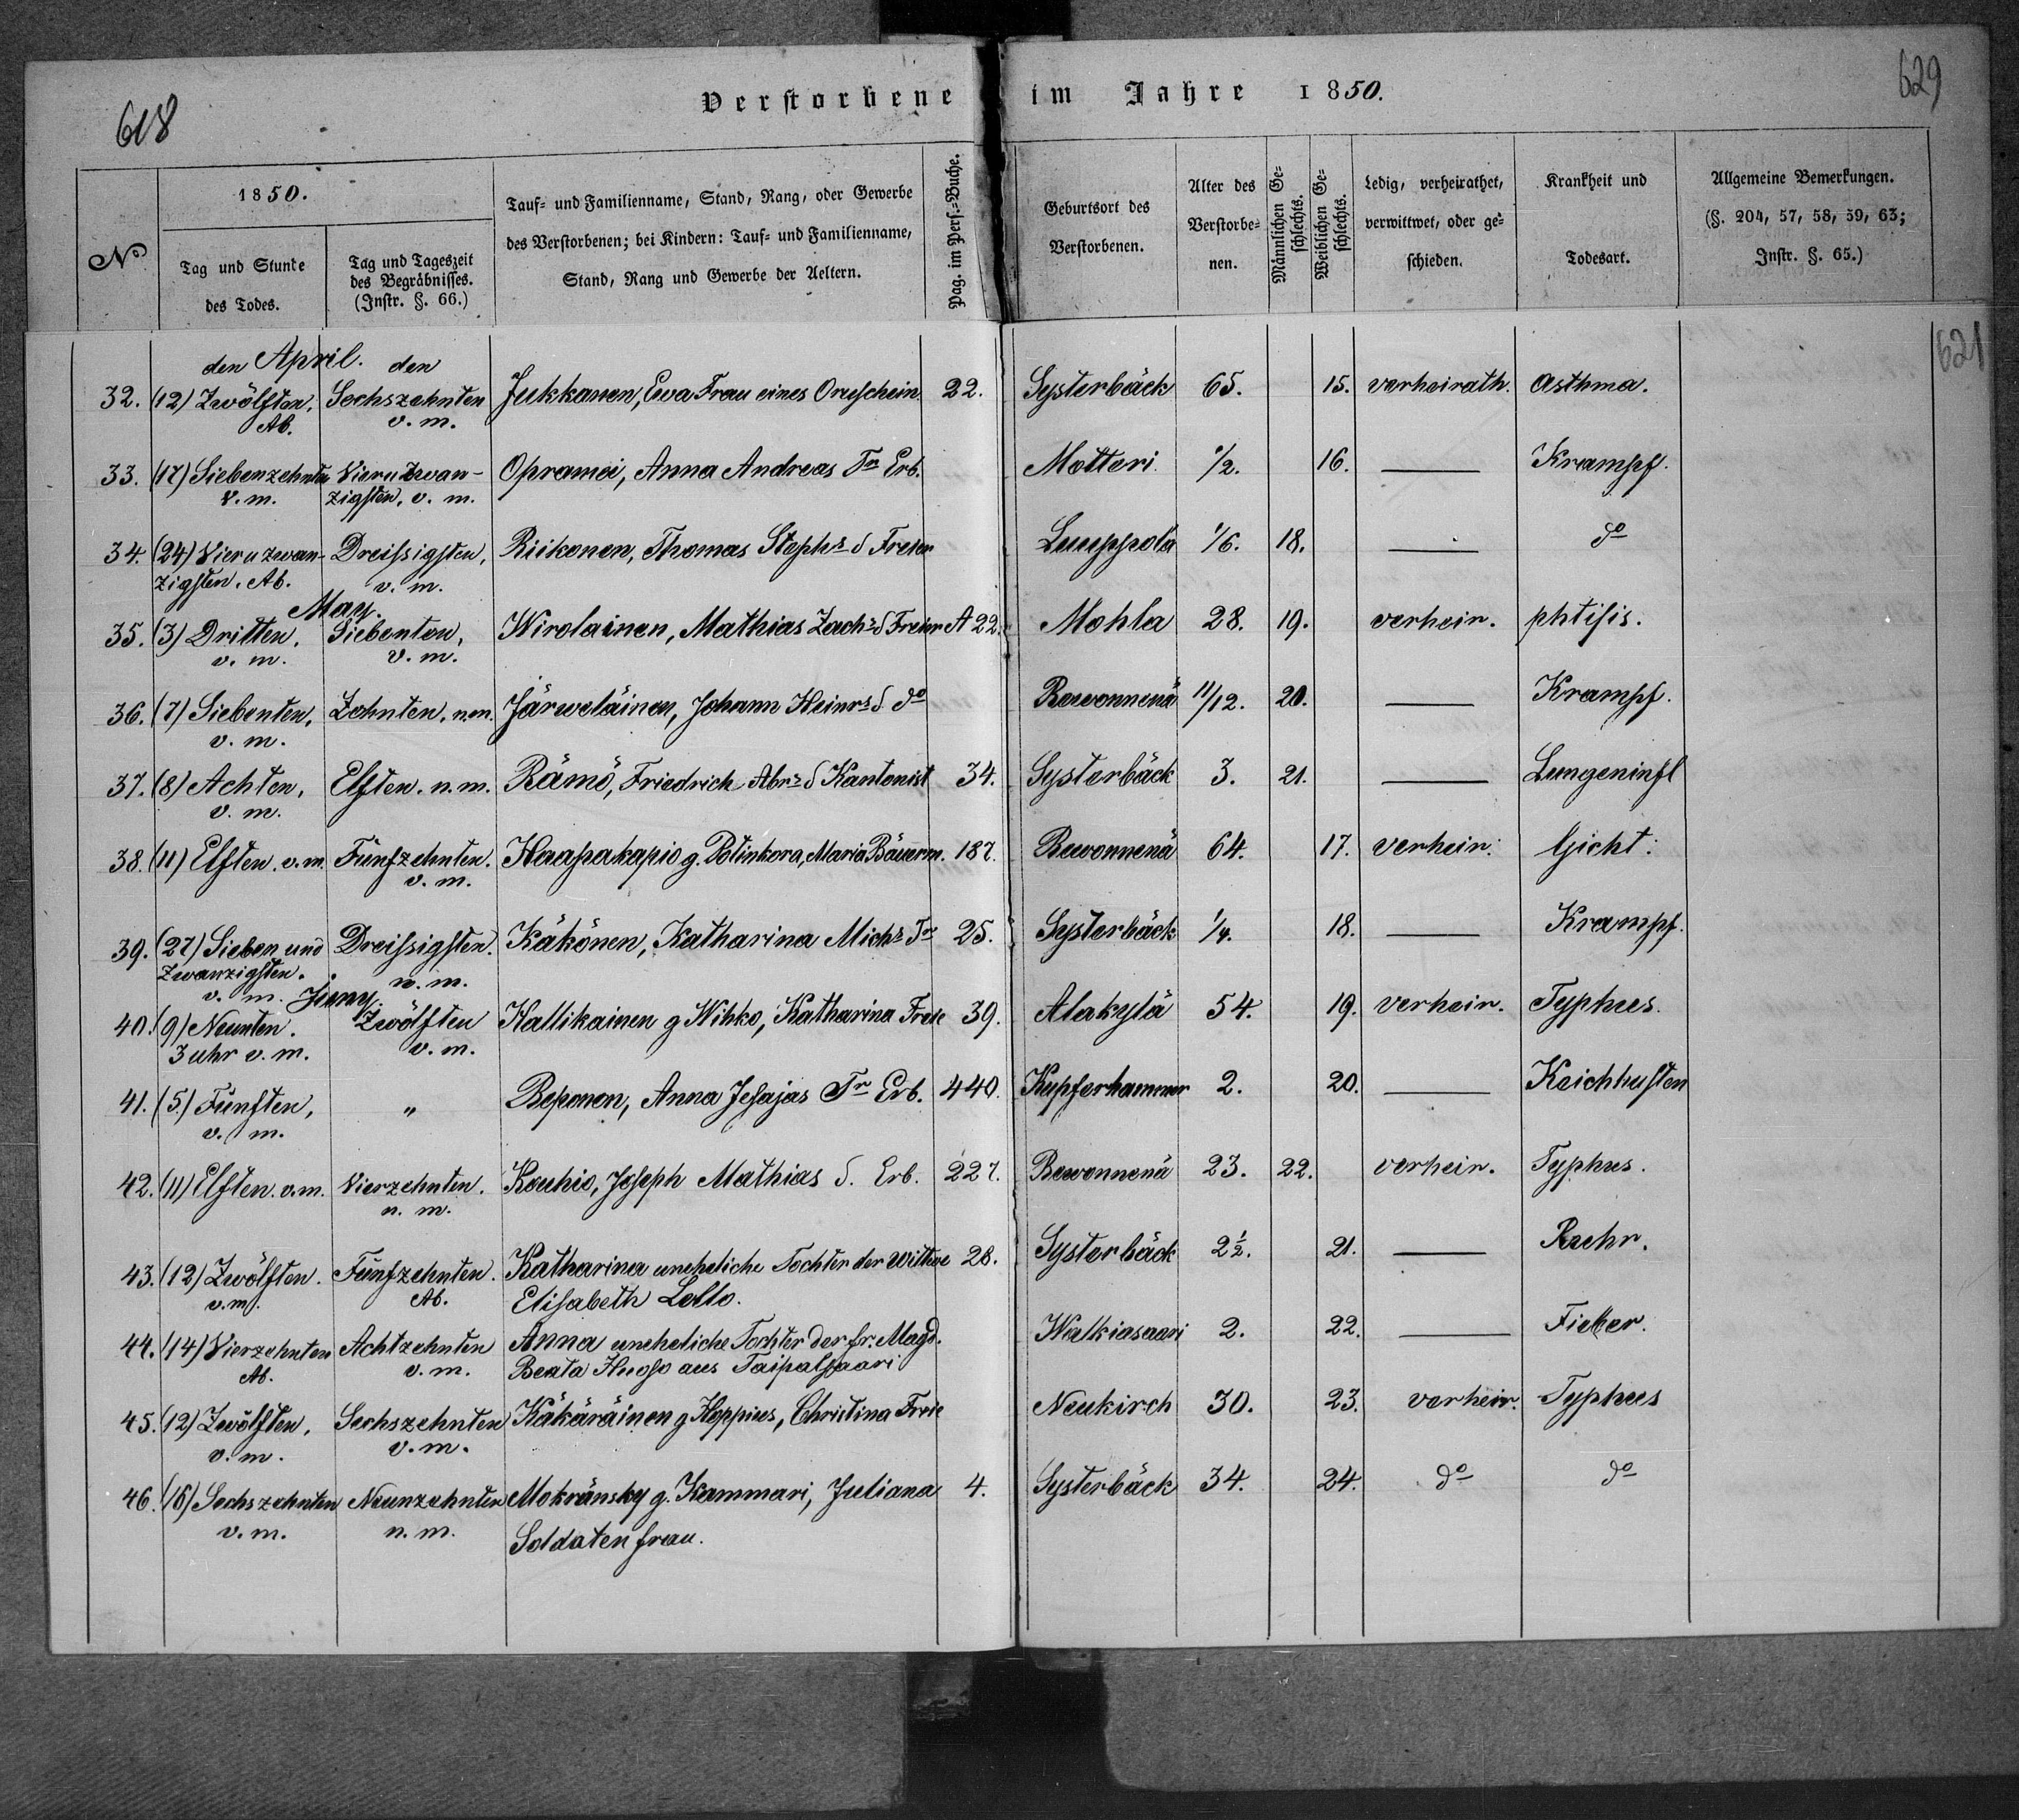 618
Verstorbene im Jahre 1850.
629
621
No
1850.
Tag und Stunde
des Todes.
Tag und Tageszeit
des Begräbnisses.
(Instr. §. 66.)
Tauf- und Familienname, Stand, Rang, oder Gewerbe
des Verstorbenen; bei Kindern: Tauf- und Familienname,
Stand, Rang und Gewerbe der Aeltern.
Pag. im Pers.-Buche.
Geburtsort des
Verstorbenen.
Alter des
Verstorbe-
nen.
Männlichen Ge-
schlechts.
Weiblichen Ge-
schlechts.
Ledig, verheirathet,
verwittwet, oder ge-
schieden.
Krankheit und
Todesart.
Allgemeine Bemerkungen.
(§. 204, 57, 58, 59, 63;
Instr. §. 65.)
den April. den
32. (12) Zwölften, Sechszehnten Jukkanen, Ewa Frau eines 22. Systerbäck 65. 15. verheirath. Asthma.
Ab. v. m.
33. (17) Siebenzehnten Vier u Zwan- Opramei, Anna Andreas Tr Erb. Motteri ½. 16. — Krampf.
v. m. zigsten, v. m.
34. (24) Vier u zwan- Dreissigsten, Riikonen, Thomas Stephs S Freier Lumppola 1/6. 18. — do
zigsten. Ab. v. m.
May.
35. (3) Dritten. Siebenten, Wirolainen, Mathias Zachs S Freier A 22. Mohla 28. 19. verheir. phtisis.
v. m. v. m.
36. (7) Siebenten, Zehnten. n.m. Järweläinen, Johann Heinrs S do Rewonnenä 11/12. 20. — Krampf.
v. m.
37. (8) Achten, Elften. n. m. Rämö, Friedrich Abrs S Kantonist 34. Systerbäck 3. 21. — Lungeninfl
v. m.
38. (11) Elften. v. m. Fünfzehnten. Haapakapio g. Potinkora, Maria Bäuerin. 187. Rewonnenä 64. 17. verheir: Gicht:
v. m.
39. (27) Sieben und Dreissigsten. Käkönen, Katharina Michs Tr 25. Systerbäck ¼. 18. — Krampf.
Zwanzigsten. n. m.
v. m. Juny.
40. (9) Neunten. Zwölften Hallikainen g Wihko, Katharina Freie 39. Alakylä 54. 19. verheir. Typhus.
3 uhr v. m. v. m.
41. (5.) Fünften, " Reponen, Anna Jesajas Tr Erb. 440. Kupferhammer 2. 20. — Keichhusten
v. m.
42. (11) Elften. v. m. Vierzehnten. Kouhio, Joseph Mathias S. Erb. 227. Rewonnenä 23. 22. verheir. Typhus.
n. m.
43. (12) Zwölften. Fünfzehnten. Katharina uneheliche Tochter der Wittwe 28. Systerbäck 2½. 21. — Ruhr.
v. m. Ab. Elisabeth Lollo.
44. (14) Vierzehnten Achtzehnten Anna uneheliche Tochter der fr. Magd. Walkiasaari 2. 22. — Fieber.
Ab. v. m. Beata Huoso aus Taipalsaari
45. (12) Zwölften, Sechszehnten Käkäräinen g Hoppius, Christina Freie Neukirch 30. 23. verheir. Typhus
v. m. v. m.
46. (16) Sechszehnten Neunzehnten Mokränsky g. Kammari, Juliana 4. Systerbäck 34. 24. do do
v. m. n. m. Soldatenfrau.